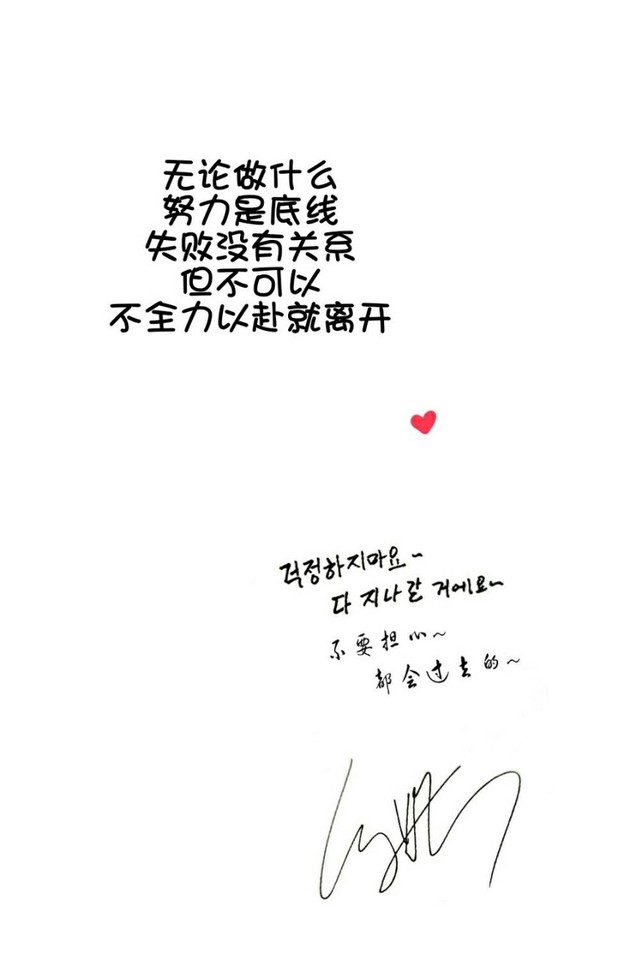 无论做什么
努力是底线
失败没有关系
但不可以
不全力以赴就离开
걱정하지마요~
다 지나갈 거에요~
不要担心~
都会过去的~